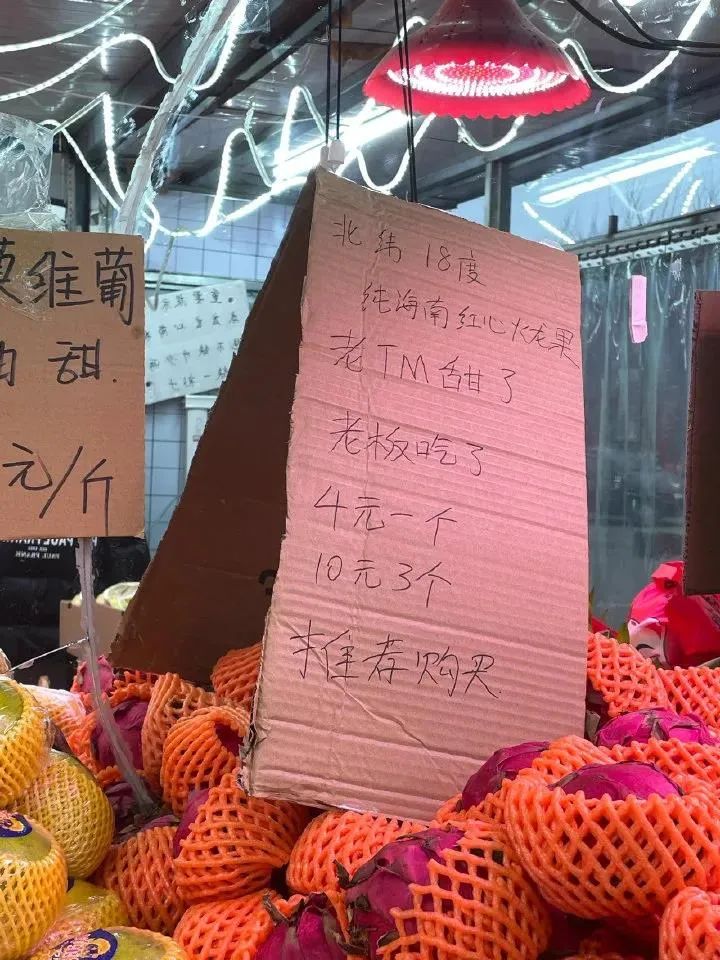 维葡
甜.
元/斤
北纬18度
纯海南红心火龙果
老TM甜了
老板吃了
4元一个
10元3个
推荐购买
PAUL FRANK